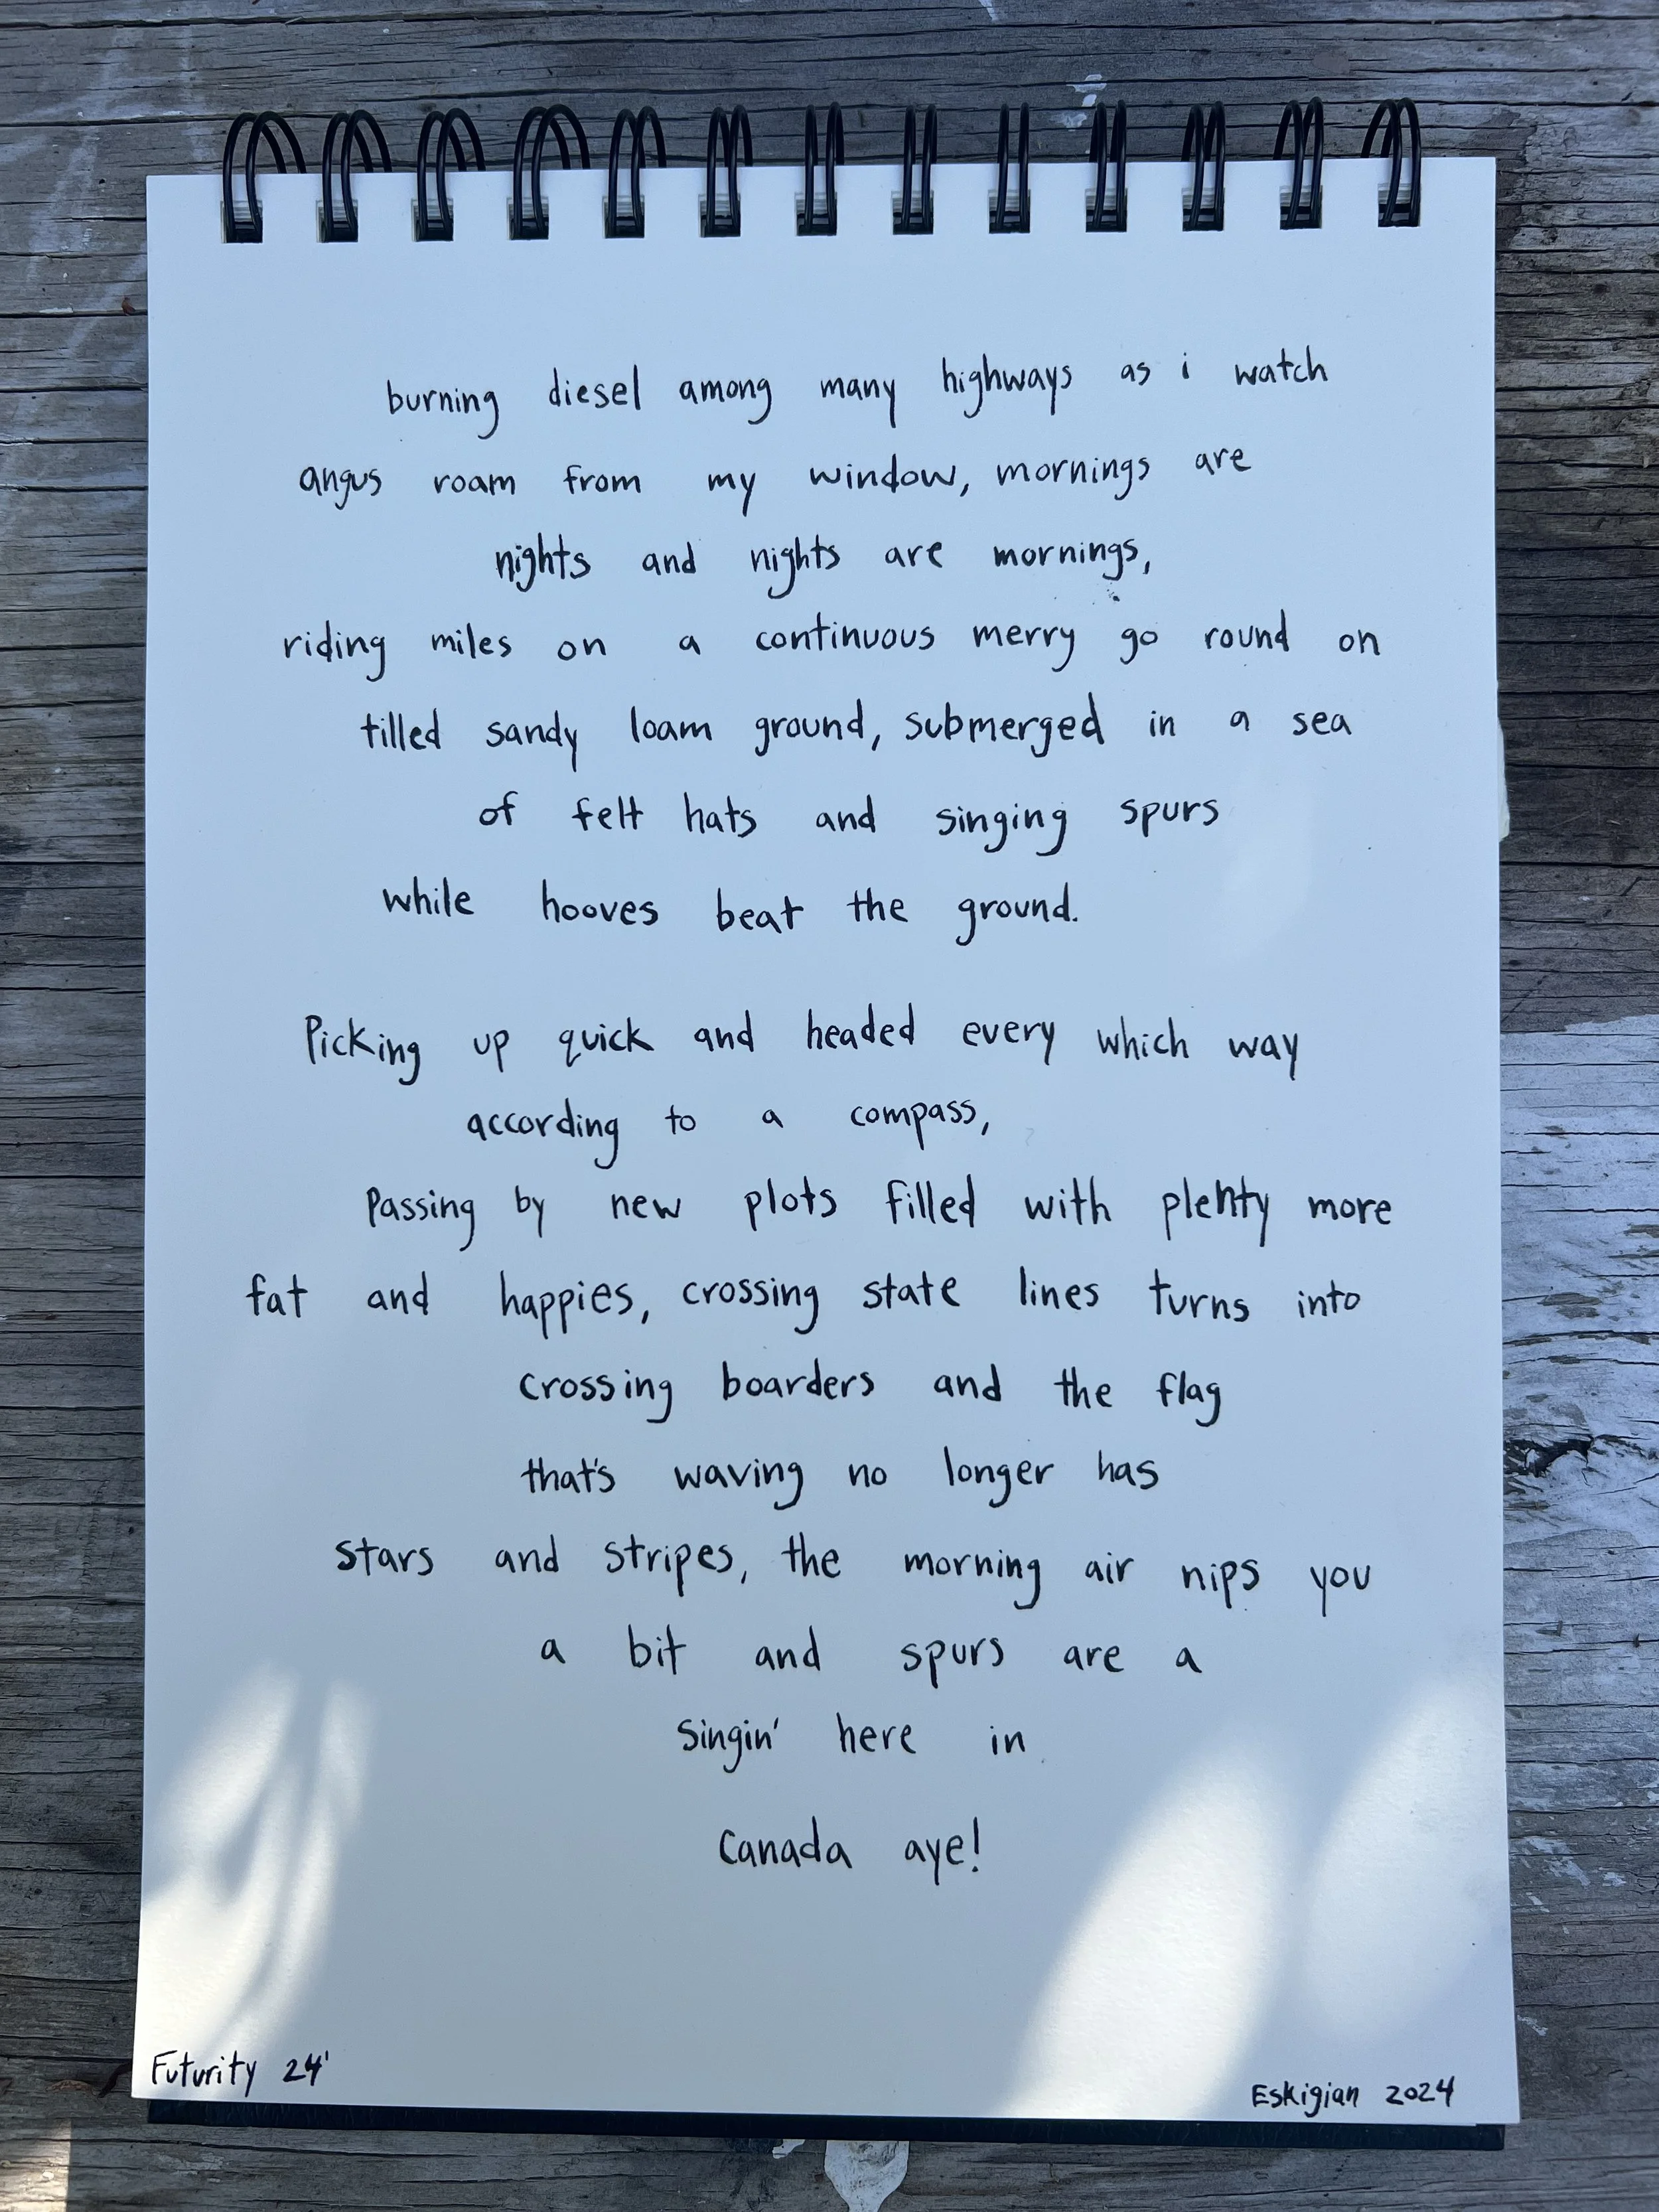 burning diesel among many highways as i watch
angus roam from my window, mornings are
nights and nights are mornings,
riding miles on a continuous merry go round on
tilled sandy loam ground, submerged in a sea
of felt hats and singing spurs
while hooves beat the ground.
Picking up quick and headed every which way
according to a compass,
Passing by new plots filled with plenty more
fat and happies, crossing state lines turns into
crossing boarders and the flag
that's waving no longer has
stars and stripes, the morning air nips you
a bit and spurs are a
singin' here in
Canada aye!
Futurity 24'
Eskigian 2024